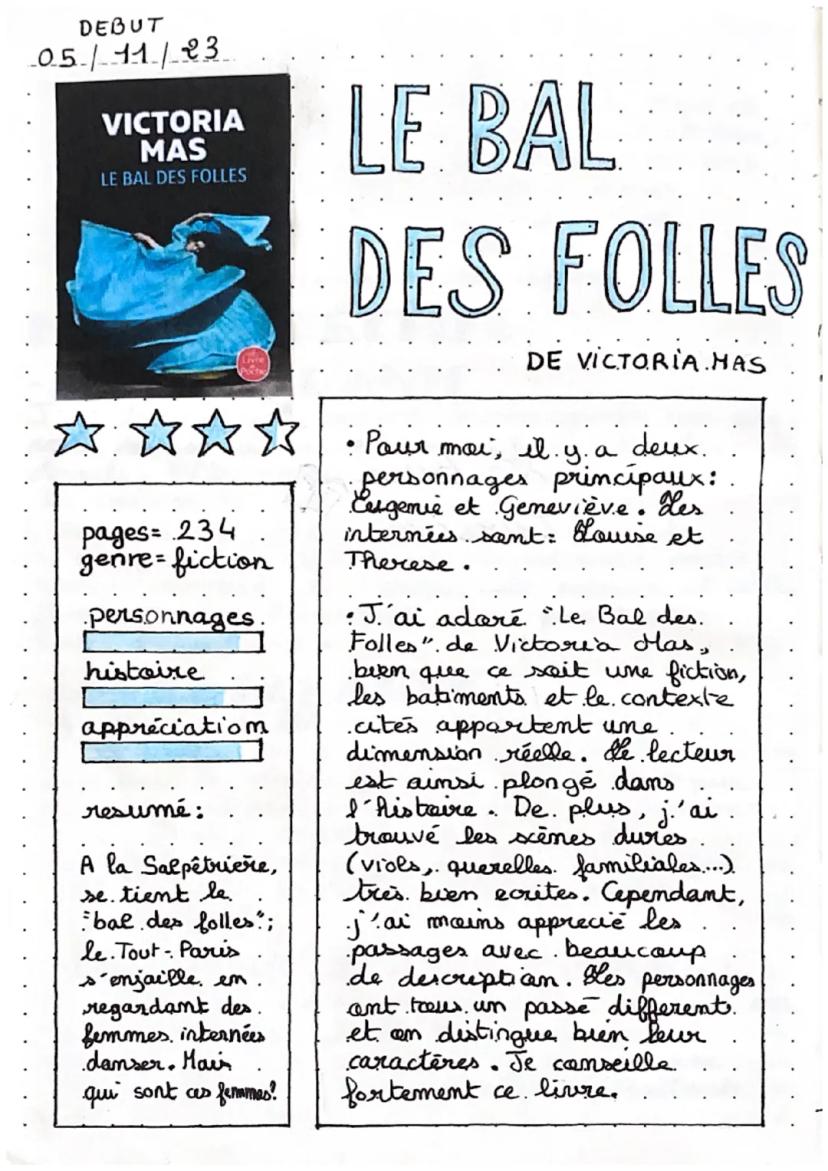 DEBUT
05/11/23
VICTORIA
MAS
LE BAL DES FOLLES
Le
Livre
de
Poche
LE BAL
DES FOLLES
DE VICTORIA MAS
pages= 234
genre= fiction
personnages
histoire
appréciation
resumé:
A la Salpêtrière,
se tient le
"bal des folles";
le Tout-Paris
s'enjaille en
regardant des
femmes internées
danser. Mais
qui sont ces femmes?
• Pour moi, il y a deux
personnages principaux:
Eugenie et Geneviève. Les
internées sont: Louise et
Therese.
• J'ai adoré "Le Bal des
Folles" de Victoria Mas,
bien que ce soit une fiction,
les batiments et le contexte
cités apportent une
dimension réelle. Le lecteur
est ainsi plongé dans
l'histoire. De plus, j'ai
trouvé les scènes dures
(viols, querelles familiales...)
très bien ecrites. Cependant,
j'ai moins apprecié les
passages avec beaucoup
de description. Les personnages
ont tous un passé different
et on distingue bien leur
caractères. Je conseille
fortement ce livre.